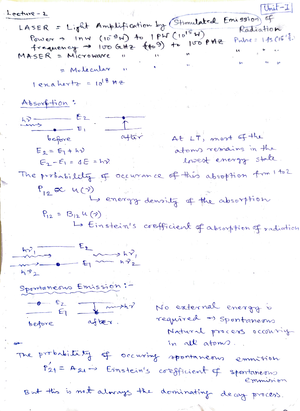 Unit-1
Lecture-2
LASER = Light Amplification by Stimulated Emission of Radiation
Power → 1 nW (10⁻⁹ W) to 1 PW (10¹⁵ W)
frequency → 100 GHz to 100 PHz
MASER = Microwave " " " " "
= Molecular " " " "
1 exahertz = 10¹⁸ Hz
Absorption :
hν E₂
E₁
before after
E₂ = E₁ + hν
E₂ - E₁ = ΔE = hν
At LT, most of the
atoms remains in the
lowest energy state
The probability of occurance of this absoption from 1 to 2
P₁₂ ∝ u(ν)
↳ energy density of the absorption
P₁₂ = B₁₂ u(ν)
↳ Einstein's coefficient of absorption of radiation
hν₁ E₂ hν₁
hν₂ E₁ hν₂
Spontaneous Emission :-
E₂ hν
E₁
before after.
No external energy is
required ⇒ spontaneous
Natural process occuring
in all atoms.
The probability of occuring spontaneous emission
P'₂₁ = A₂₁ → Einstein's coefficient of spontaneous
emission
But this is not always the dominating decay process.